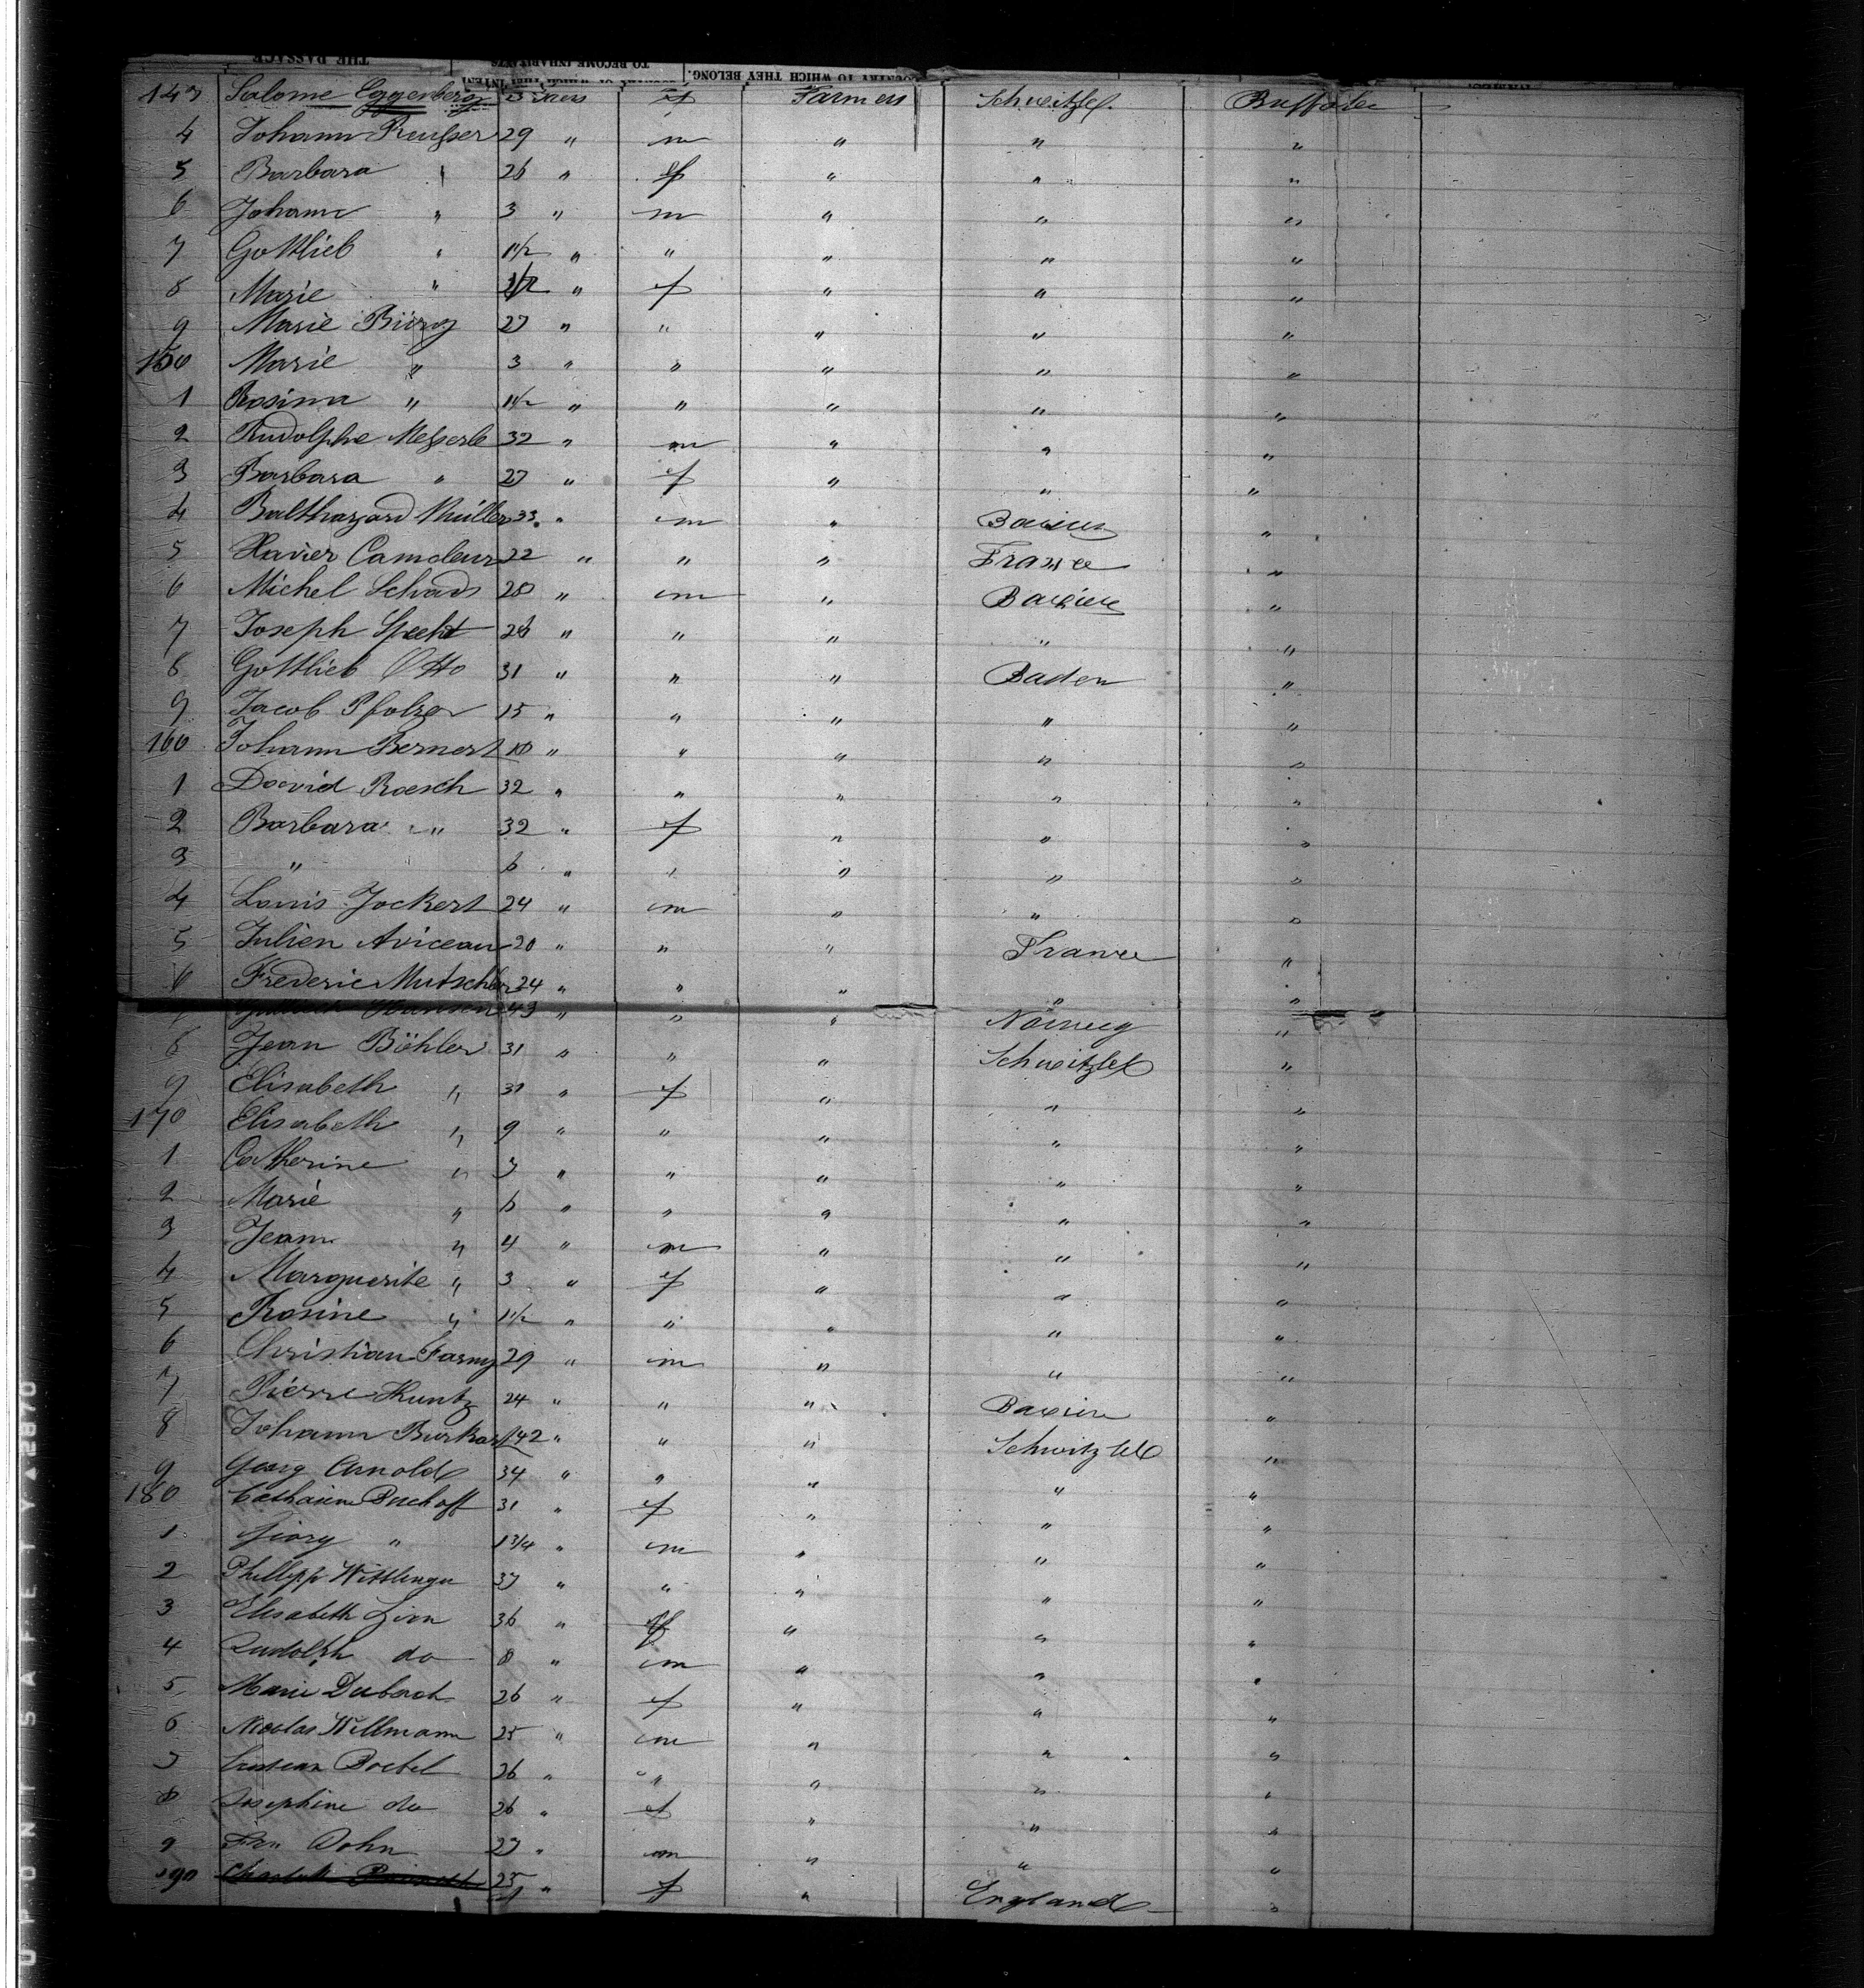 THE PASSAGE TO BECOME INHABITANTS COUNTRY TO WHICH THEY BELONG.
143 Salome Eggenberg 23 years f Farmers Schweitzld. Buffadoe
4 Johann Reusser 29 " m " " "
5 Barbara " 26 " f " " "
6 Johann " 3 " m " " "
7 Gottlieb " 1 1/2 " " " " "
8 Marie " 1/2 " f " " "
9 Marie Bürg 27 " " " " "
150 Marie " 3 " " " " "
1 Rosina " 1 1/2 " " " " "
2 Rudolphe Messerle 32 " m " " "
3 Barbara " 27 " f " " "
4 Balthazard Müller 33 " m " "
5 Xavier Camdeur 22 " " " France "
6 Michel Schads 28 " m " Baviere "
7 Joseph Specht 26 " " " " "
8 Gottlieb Otto 31 " " " Baden "
9 Jacob Pfolzer 15 " " " " "
160 Johann Bernert " " " " "
1 David Roesch 32 " " " " "
2 Barbara " 32 " f " " "
3 " 6 " " " " "
4 Louis Jockert 24 " m " " "
5 Julien Aviceau 20 " " " France "
6 Frederic Mutschler 24 " " " " "
7 Hansen 43 " " " Norweg "
8 Jean Böhler 31 " " " Schweitzld "
9 Elisabeth " 31 " f " " "
170 Elisabeth " 9 " " " " "
1 Catherine " 7 " " " " "
2 Marie " 6 " " " " "
3 Jean " 4 " m " " "
4 Marguerite " 3 " f " " "
5 Rosine " 1 1/2 " " " " "
6 Christian Farny 29 " m " " "
7 Pierre Kuntz 24 " " " Baviere "
8 Johann Burkart 42 " " " Schweitzld "
9 Georg Arnold 34 " " " " "
180 Catharina Bischoff 31 " f " " "
1 Georg " 1 3/4 " m " " "
2 Phillipp Wittlinger 37 " " " " "
3 Elisabeth Zinn 36 " f " " "
4 Rudolph do 8 " m " " "
5 Marie Dubach 26 " f " " "
6 Nicolas Willmann 25 " m " " "
7 Boebel 26 " " " " "
8 Josephine do 26 " f " " "
9 Dohn 27 " m " " "
190 25 " f " England "